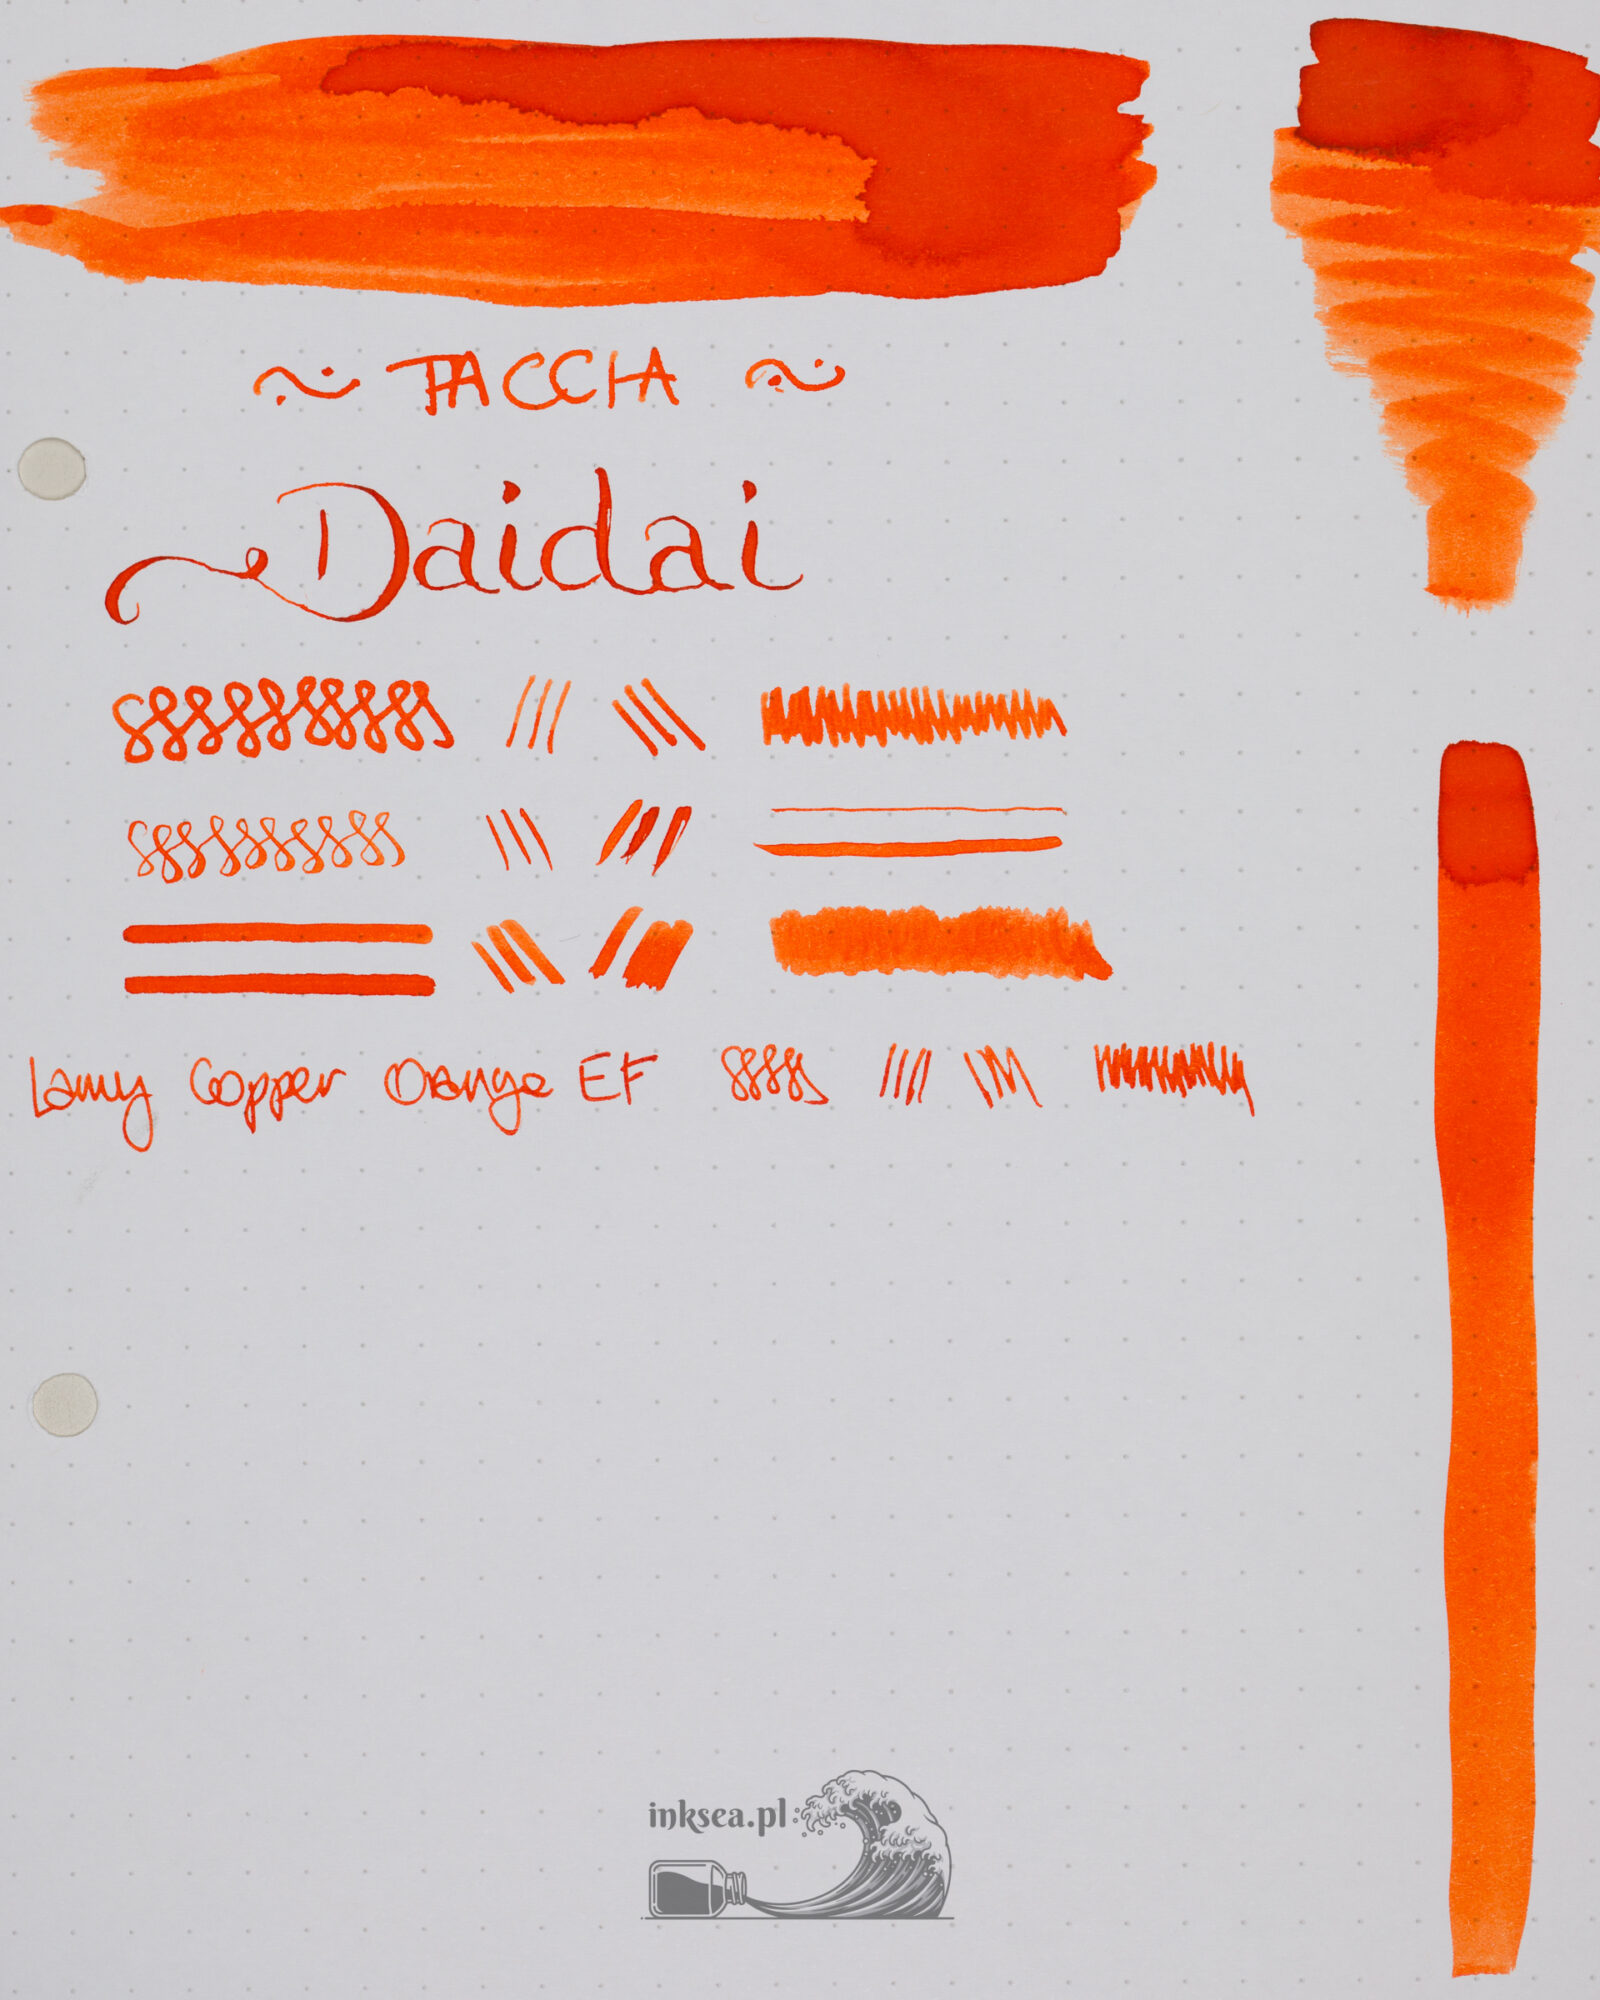 ~ TACCIA ~
Daidai
Lamy Copper Orange EF
inksea.pl